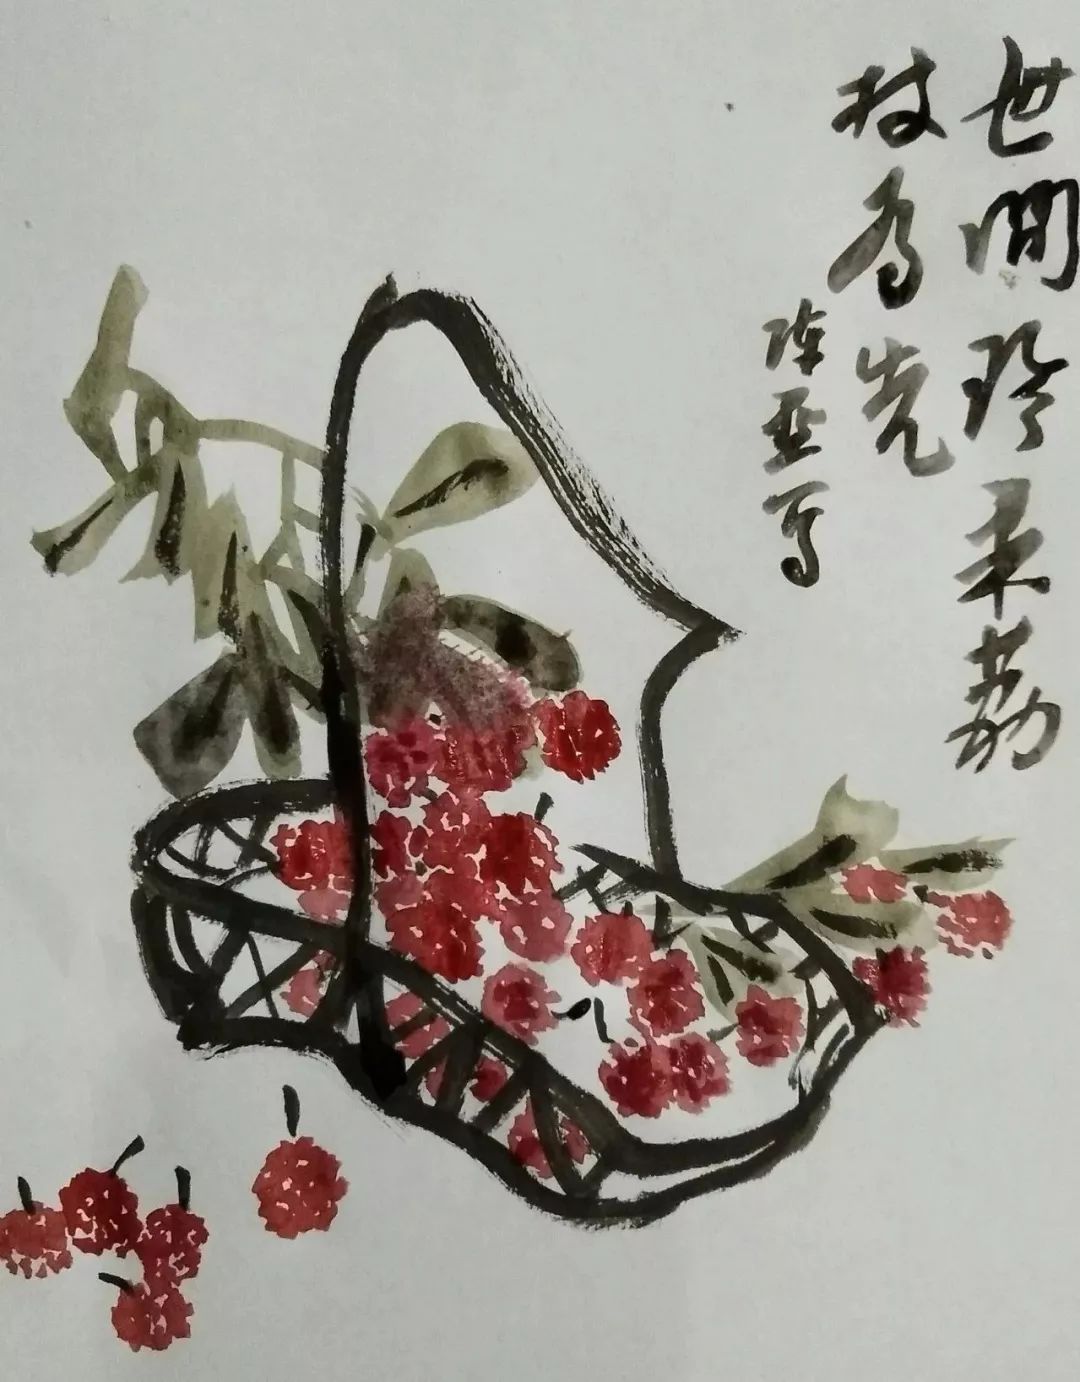 世間珍果荔
枝為先
陈亚写